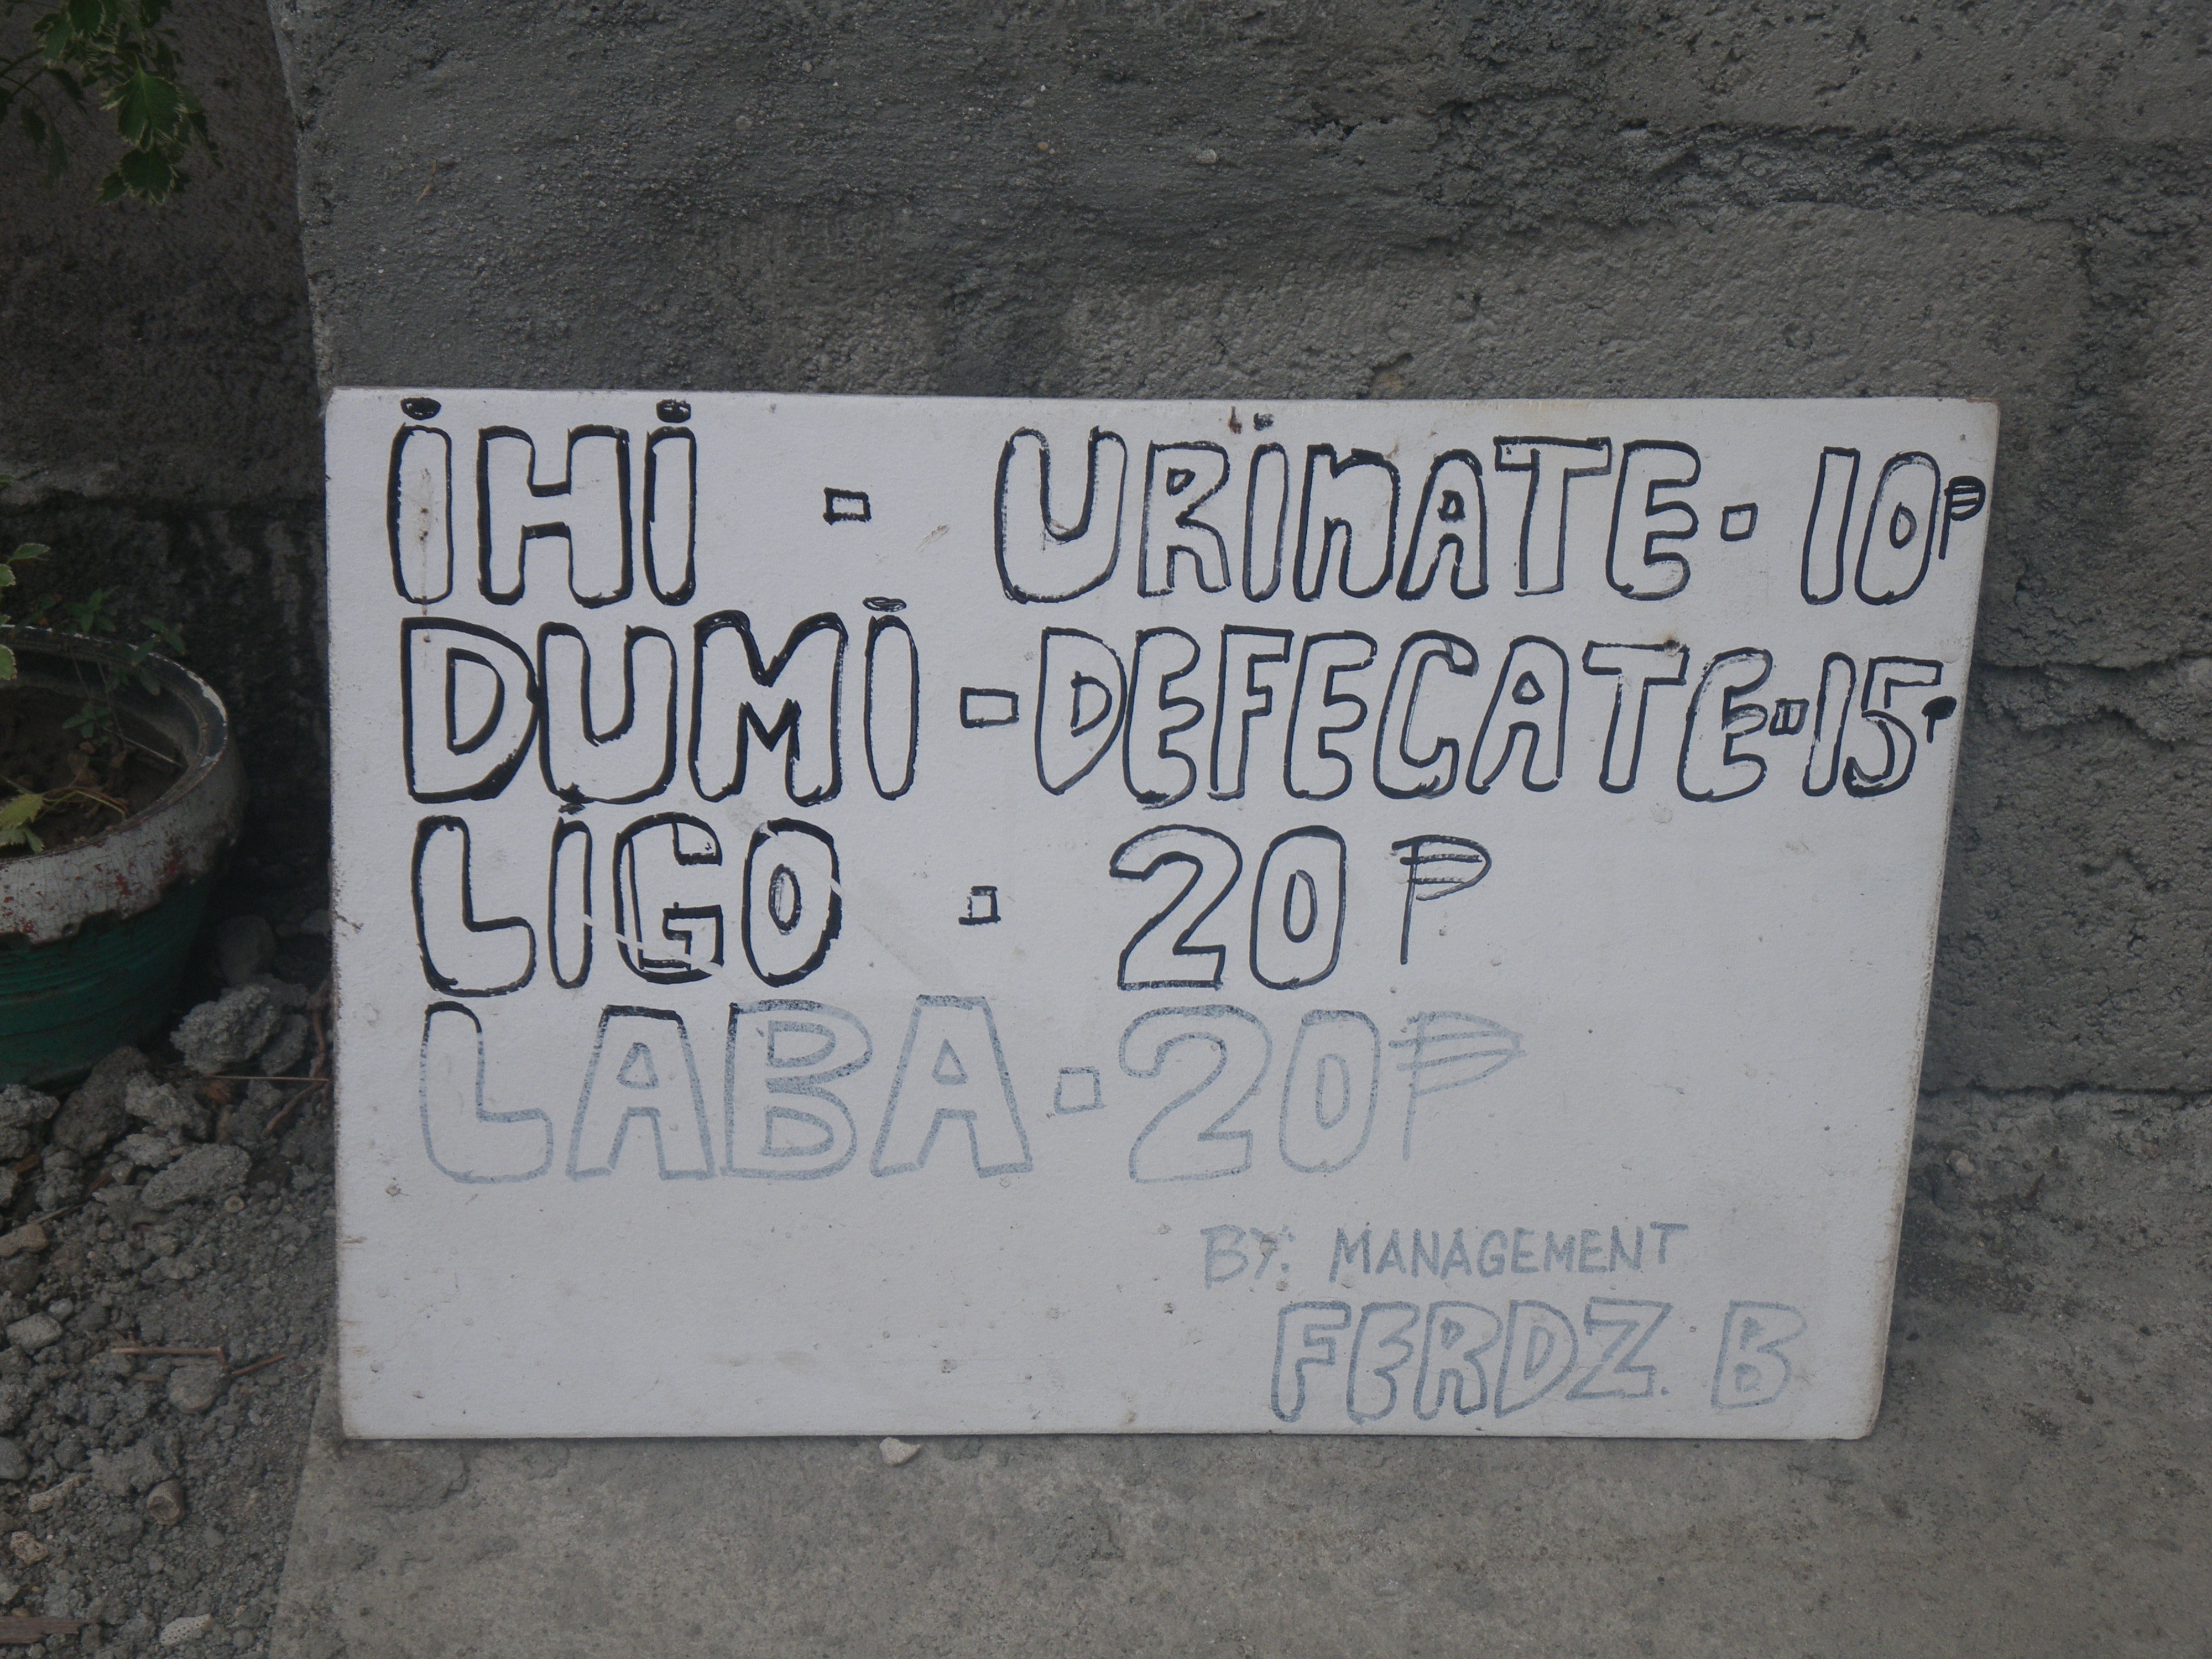 iHi - URiNATE - 10₱
DUMi - DEFECATE - 15₱
LiGO - 20 ₱
LABA - 20₱
BY: MANAGEMENT
FERDZ. B